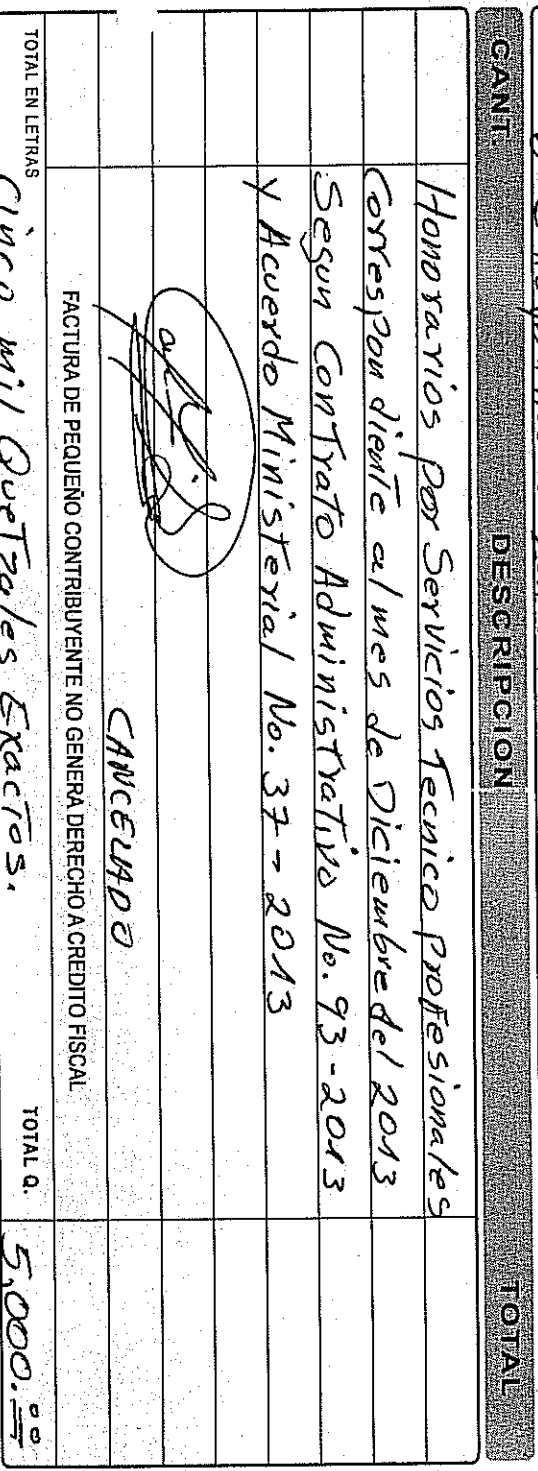 CANT. DESCRIPCION TOTAL
Honorarios por Servicios Tecnico Profesionales
Correspondiente al mes de Diciembre del 2013
Segun Contrato Administrativo No. 93-2013
y Acuerdo Ministerial No. 37-2013
CANCELADO
FACTURA DE PEQUEÑO CONTRIBUYENTE NO GENERA DERECHO A CREDITO FISCAL
TOTAL EN LETRAS
Cinco mil Quetzales Exactos.
TOTAL Q. 5,000.00